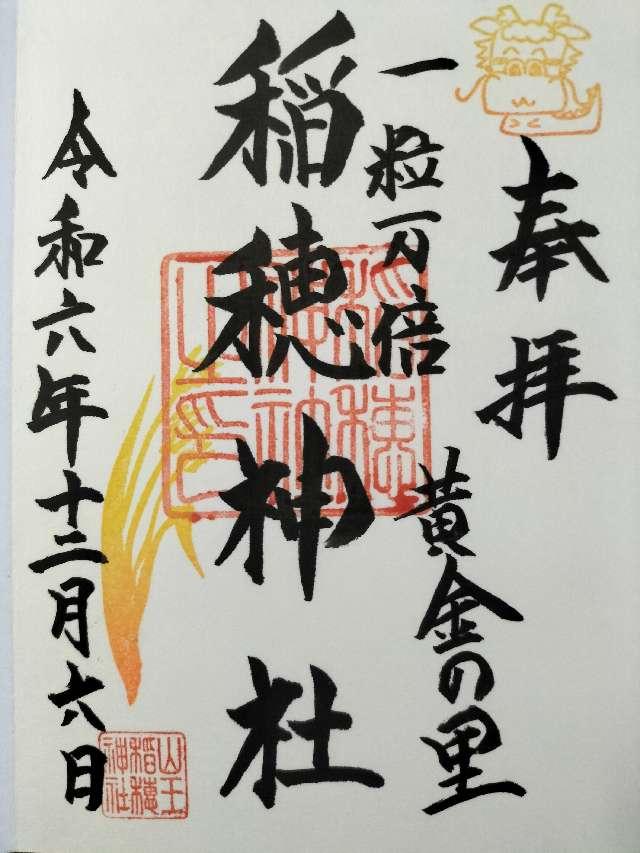 奉拝
一粒万倍
黄金の里
稲穂神社
令和六年十二月六日
山王
稲穂
神社